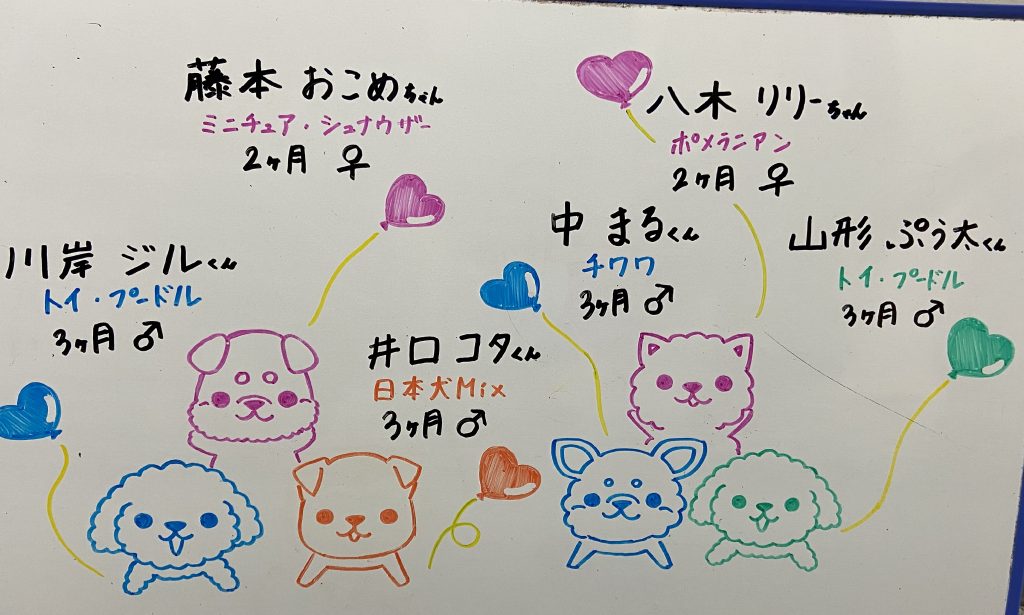 藤本 おこめちゃん
ミニチュア・シュナウザー
2ヶ月 ♀
八木 リリーちゃん
ポメラニアン
2ヶ月 ♀
川岸 ジルくん
トイ・プードル
3ヶ月 ♂
井口 コタくん
日本犬Mix
3ヶ月 ♂
中 まるくん
チワワ
3ヶ月 ♂
山形 ぷう太くん
トイ・プードル
3ヶ月 ♂